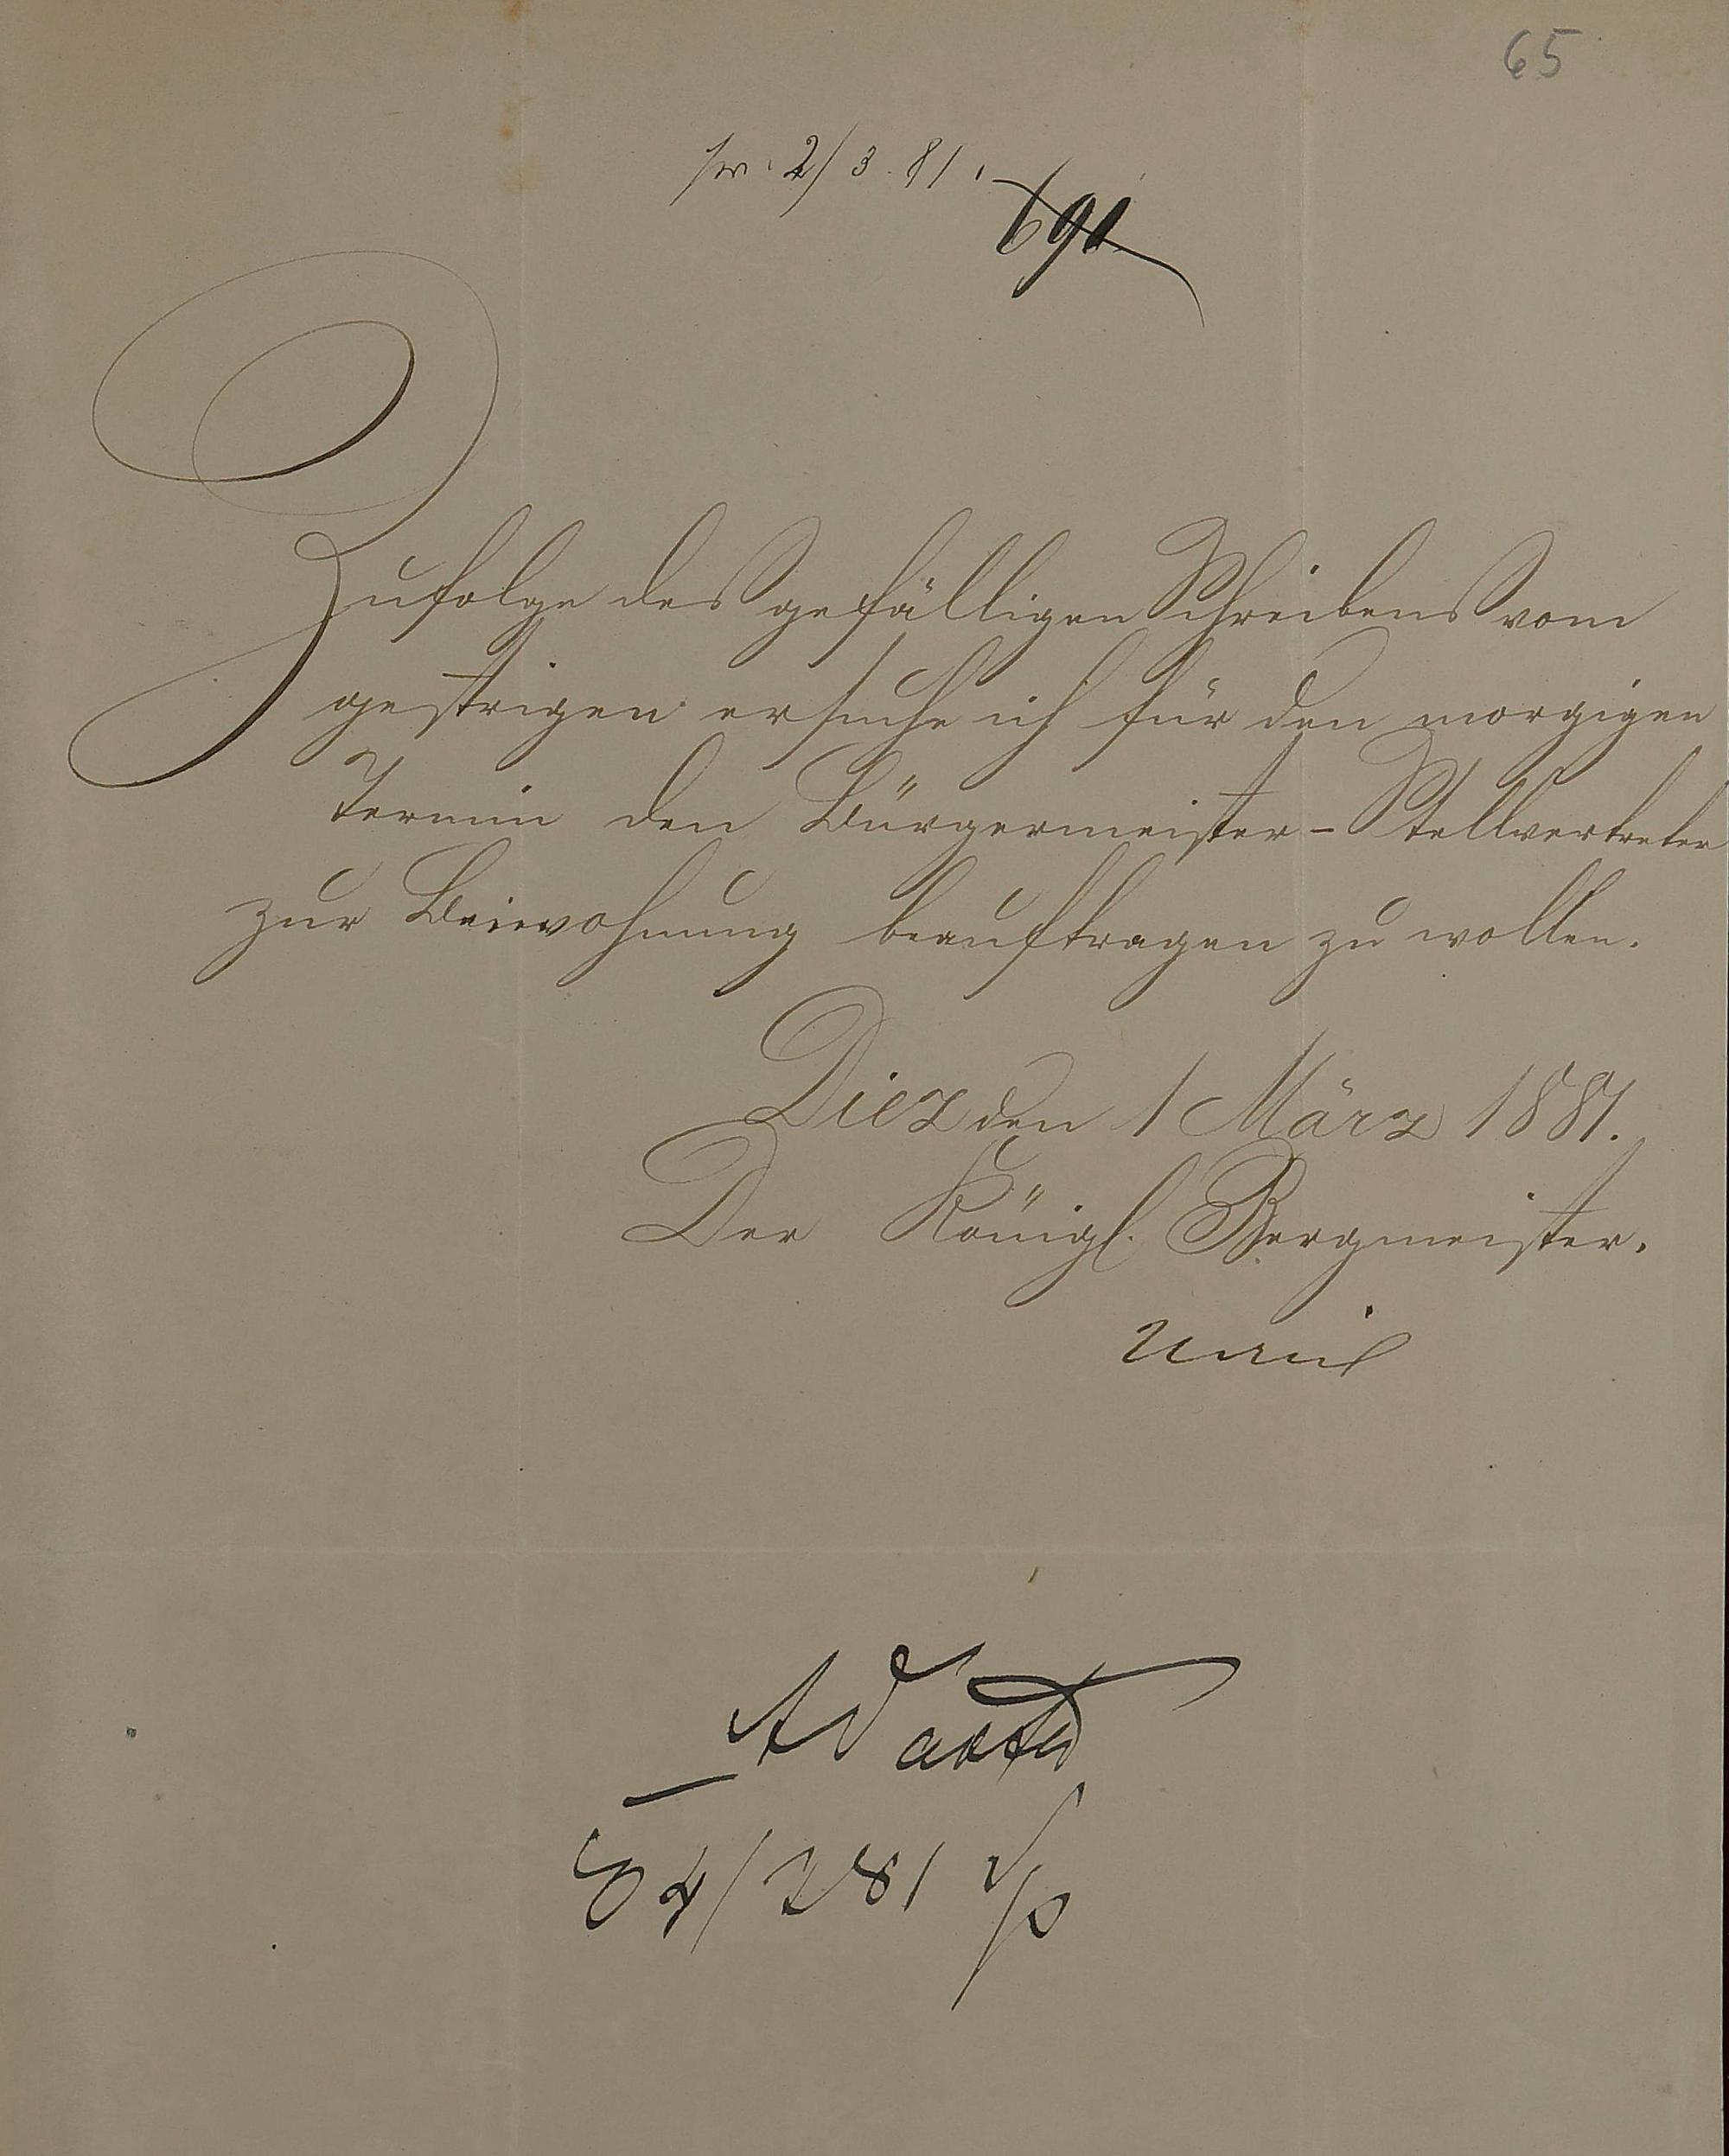 65
pr. 2/3.81.
691
Zufolge des gefälligen Schreibens vom
gestrigen ersuche ich für den morgigen
Termin den Bürgermeister-Stellvertreter
zur Beiwohnung beauftragen zu wollen.
Diez den 1 März 1881.
Der Königl. Bergmeister.
ad acta
4/3 81